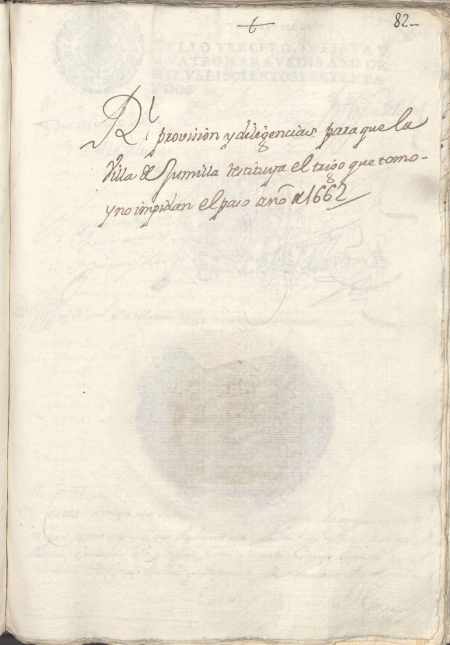 82
Rl provision y diligencias para que la
Villa de Jumilla restituya el trigo que tomo
y no impidan el paso año de 1662